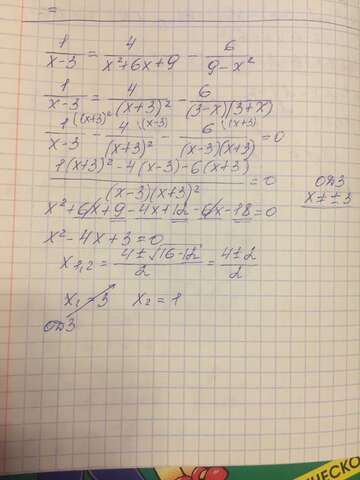 =
1/(x-3) = 4/(x²+6x+9) - 6/(9-x²)
1/(x-3) = 4/(x+3)² - 6/((3-x)(3+x))
1\(x+3)²/(x-3) - 4\(x-3)/(x+3)² - 6\(x+3)/((x-3)(x+3)) = 0
(1(x+3)²-4(x-3)-6(x+3))/((x-3)(x+3)²) = 0
ОДЗ
x≠±3
x²+6x+9-4x+12-6x-18=0
x²-4x+3=0
x₁,₂ = (4±√16-12)/2 = (4±2)/2
x₁=3 x₂=1
ОДЗ
ЧЕСКО